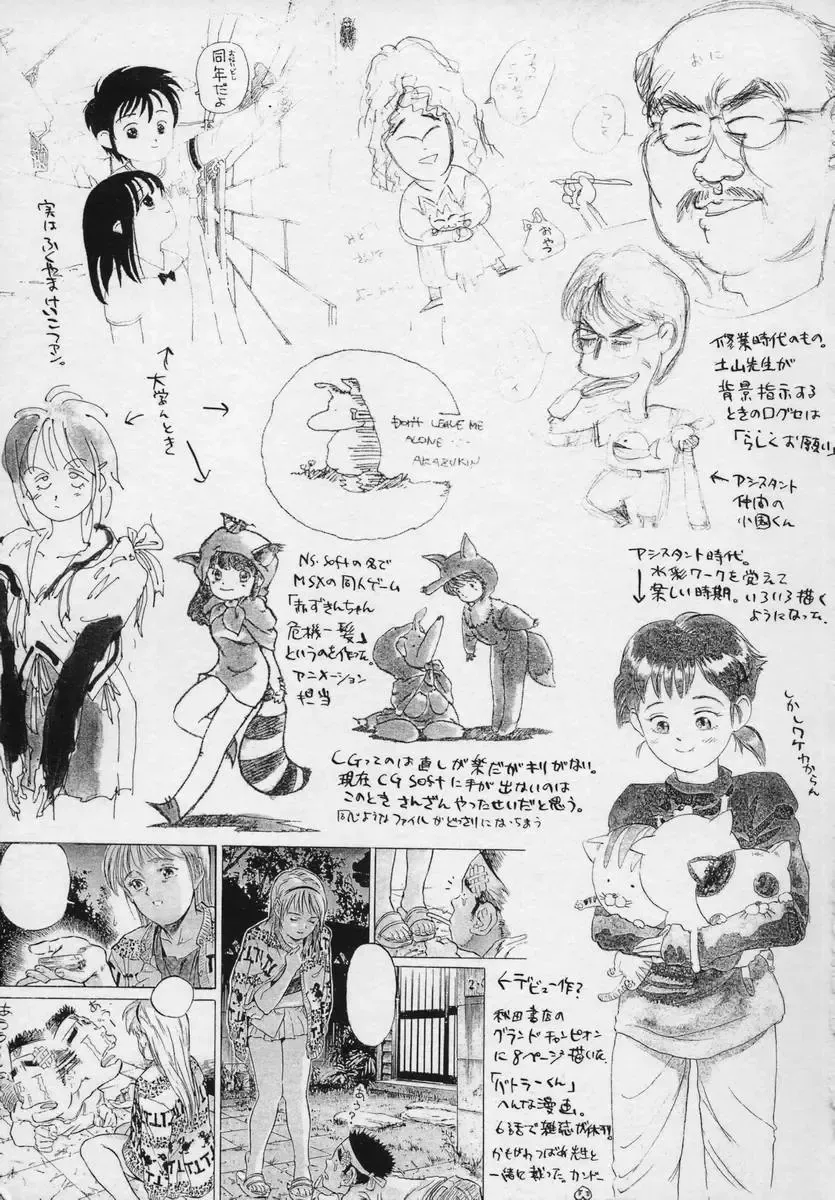 同年だよ
おないどし
おに
おやつ
実はふくやまけいこファン。
↑
大学んとき
↓
←
→
DON'T LEAVE ME
ALONE…
AKAZUKIN
修業時代のもの。
土山先生が
背景指示する
ときの口グセは
「らしくお願い」
←アシスタント
仲間の
小國くん
NS・Softの名で
MSXの同人ゲーム
「赤ずきんちゃん
危機一髪」
というのを作った。
アニメーション
担当
アシスタント時代。
水彩ワークを覚えて
楽しい時期。いろいろ描く
ようになった。
↓
しかしワケわからん
CGってのは直しが楽だがキリがない。
現在CG Softに手が出ないのは
このとき さんざんやったせいだと思う。
同じようなファイルがどっさりになっちまう
←デビュー作?
秋田書店の
グランドチャンピオン
に8ページ描いた。
「バトラーくん」
へんな漫画。
6話で雑誌が休刊。
かもがわつばめ先生と
一緒に載った。カンドー